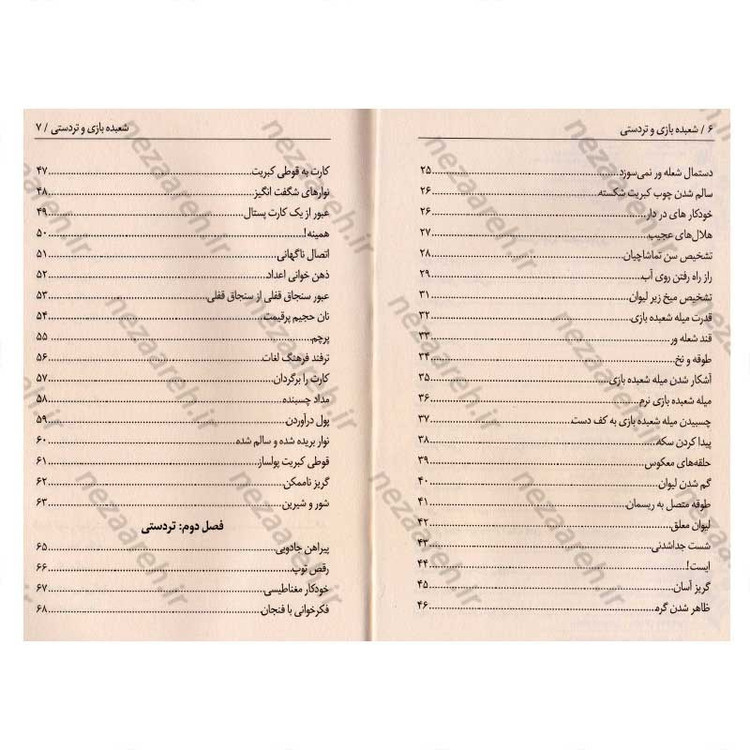 ۶ / شعبده بازی و تردستی
دستمال شعله ور نمی‌سوزد ........ ۲۵
سالم شدن چوب کبریت شکسته ........ ۲۶
خودکار های در دار ........ ۲۶
هلال‌های عجیب ........ ۲۷
تشخیص سن تماشاچیان ........ ۲۸
راز راه رفتن روی آب ........ ۲۹
تشخیص میخ زیر لیوان ........ ۳۱
قدرت میله شعبده بازی ........ ۳۲
قند شعله ور ........ ۳۳
طوقه و نخ ........ ۳۴
آشکار شدن میله شعبده بازی ........ ۳۵
میله شعبده بازی نرم ........ ۳۶
چسبیدن میله شعبده بازی به کف دست ........ ۳۷
پیدا کردن سکه ........ ۳۸
حلقه‌های معکوس ........ ۳۹
گم شدن لیوان ........ ۴۰
طوقه متصل به ریسمان ........ ۴۱
لیوان معلق ........ ۴۲
شست جداشدنی ........ ۴۳
ایست! ........ ۴۴
گریز آسان ........ ۴۵
ظاهر شدن گره ........ ۴۶
شعبده بازی و تردستی / ۷
کارت به قوطی کبریت ........ ۴۷
نوارهای شگفت انگیز ........ ۴۸
عبور از یک کارت پستال ........ ۴۹
همینه! ........ ۵۰
اتصال ناگهانی ........ ۵۱
ذهن خوانی اعداد ........ ۵۲
عبور سنجاق قفلی از سنجاق قفلی ........ ۵۳
نان حجیم پرقیمت ........ ۵۴
پرچم ........ ۵۵
ترفند فرهنگ لغات ........ ۵۶
کارت را برگردان ........ ۵۷
مداد چسبنده ........ ۵۸
پول درآوردن ........ ۵۹
نوار بریده شده و سالم شده ........ ۶۰
قوطی کبریت پولساز ........ ۶۱
گریز ناممکن ........ ۶۲
شور و شیرین ........ ۶۳
فصل دوم: تردستی
پیراهن جادویی ........ ۶۵
رقص توپ ........ ۶۶
خودکار مغناطیسی ........ ۶۷
فکرخوانی با فنجان ........ ۶۸
nezaareh.ir